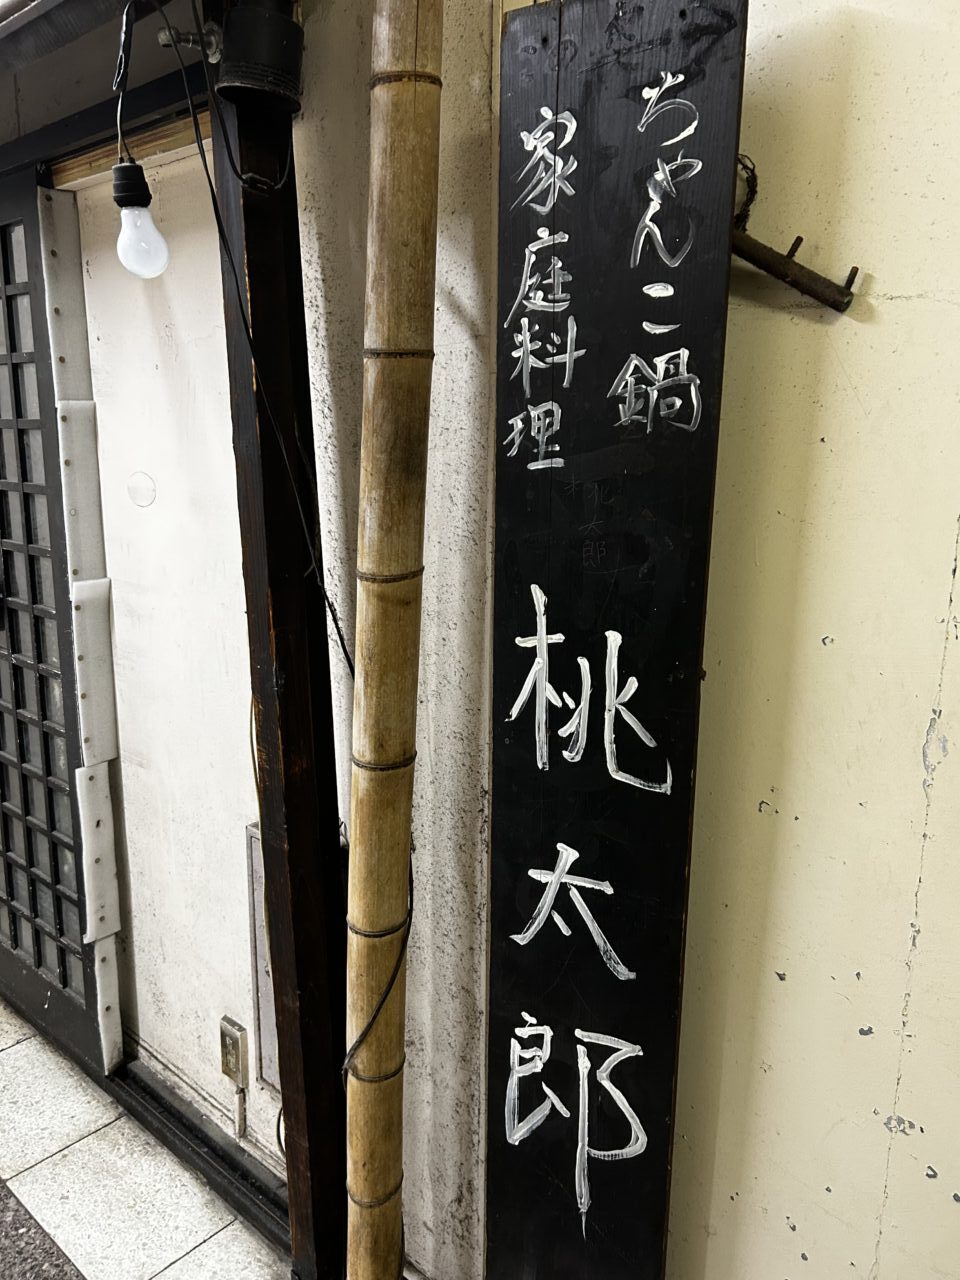 ちゃんこ鍋
家庭料理
桃太郎